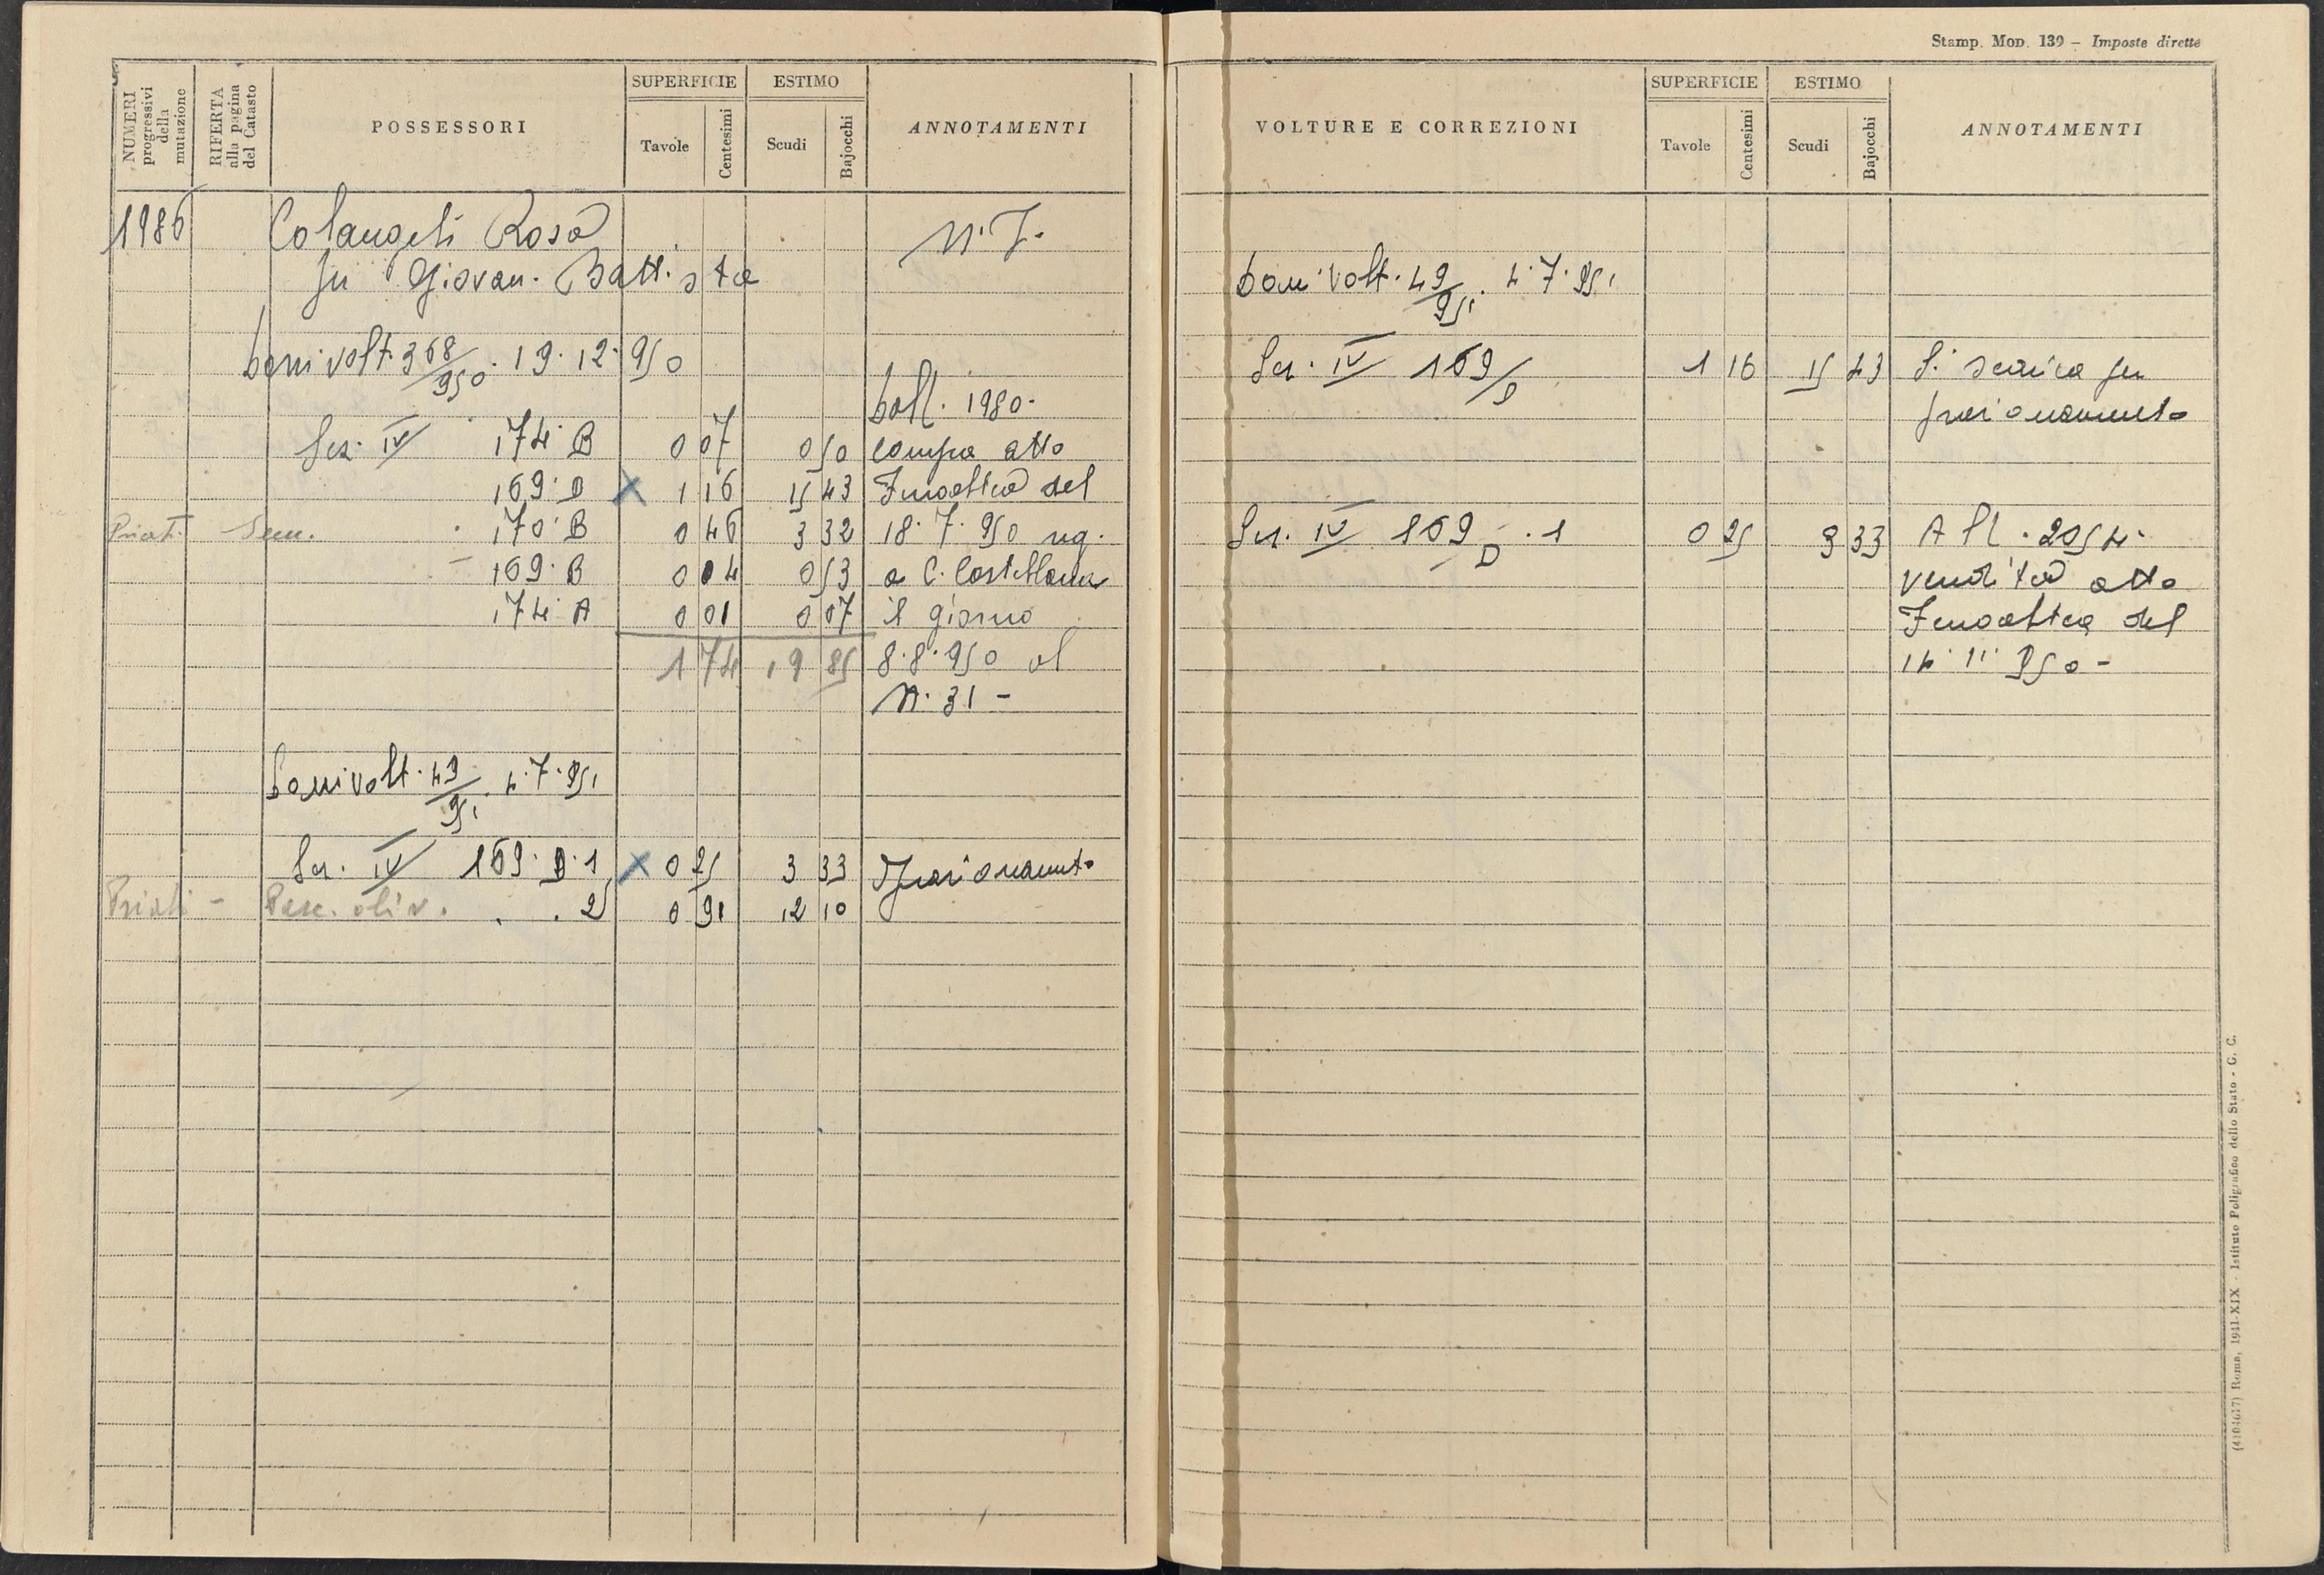 NUMERI progressivi della mutazione
RIFERTA alla pagina del Catasto
POSSESSORI
SUPERFICIE
Tavole
Centesimi
ESTIMO
Scudi
Bajocchi
ANNOTAMENTI
1986 Colangeli Rosa N. I.
fu Giovan. Battista
Domi volt. 368/950. 19.12.950
dall. 1980.
Sez. IV 174. B 0 07 0 50 compra atto
169. D X 1 16 15 43 del
Sem. 170. B 0 46 3 32 18.7.950 reg.
169. B 0 04 0 53 a C. Castellana
174. A 0 01 0 07 il giorno
1 74 19 85 8.8.950 al
N. 31 -
Domi volt. 49/951. 4.7.951
Sez. IV 169. D. 1 X 0 25 3 33 Frazionamento
Pasc. oliv. . . 2 0 91 12 10
Stamp. Mod. 139 - Imposte dirette
VOLTURE E CORREZIONI
SUPERFICIE
Tavole
Centesimi
ESTIMO
Scudi
Bajocchi
ANNOTAMENTI
Domi volt. 49/951. 4.7.951
Sez. IV 169/D 1 16 15 43 Si scarica per
frazionamento
Sez. IV 169 D. 1 0 25 3 33 Al 2054.
vendita atto
del
14.11.950 -
(4104617) Roma, 1941-XIX - Istituto Poligrafico dello Stato - G. C.